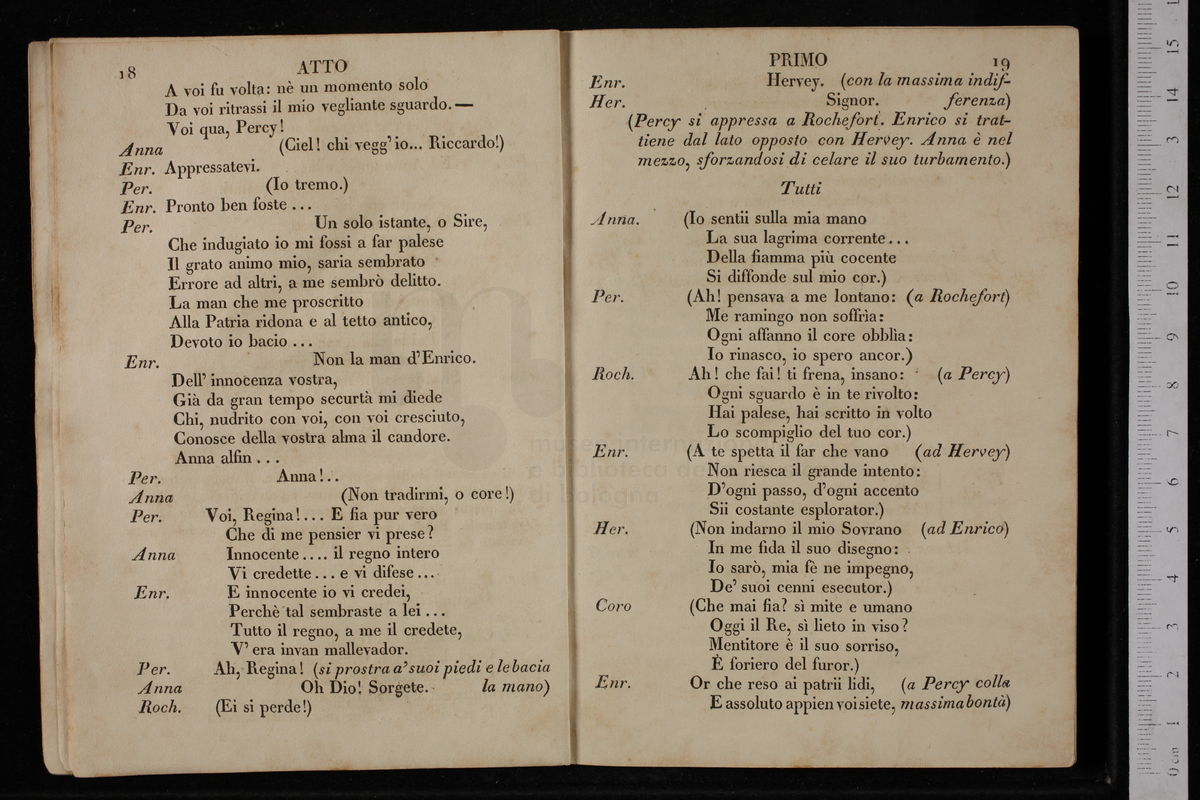 18 ATTO
A voi fu volta: nè un momento solo
Da voi ritrassi il mio vegliante sguardo.—
Voi qua, Percy!
Anna (Ciel! chi vegg'io... Riccardo!)
Enr. Appressatevi.
Per. (Io tremo.)
Enr. Pronto ben foste...
Per. Un solo istante, o Sire,
Che indugiato io mi fossi a far palese
Il grato animo mio, saria sembrato
Errore ad altri, a me sembrò delitto.
La man che me proscritto
Alla Patria ridona e al tetto antico,
Devoto io bacio...
Enr. Non la man d'Enrico.
Dell' innocenza vostra,
Già da gran tempo securtà mi diede
Chi, nudrito con voi, con voi cresciuto,
Conosce della vostra alma il candore.
Anna alfin...
Per. Anna!...
Anna (Non tradirmi, o core!)
Per. Voi, Regina!... E fia pur vero
Che di me pensier vi prese?
Anna Innocente.... il regno intero
Vi credette... e vi difese...
Enr. E innocente io vi credei,
Perchè tal sembraste a lei...
Tutto il regno, a me il credete,
V' era invan mallevador.
Per. Ah, Regina! (si prostra a' suoi piedi e le bacia
Anna Oh Dio! Sorgete. la mano)
Roch. (Ei si perde!)
PRIMO 19
Enr. Hervey. (con la massima indif-
Her. Signor. ferenza)
(Percy si appressa a Rochefort. Enrico si trat-
tiene dal lato opposto con Hervey. Anna è nel
mezzo, sforzandosi di celare il suo turbamento.)
Tutti
Anna. (Io sentii sulla mia mano
La sua lagrima corrente...
Della fiamma più cocente
Si diffonde sul mio cor.)
Per. (Ah! pensava a me lontano: (a Rochefort)
Me ramingo non soffrìa:
Ogni affanno il core obblìa:
Io rinasco, io spero ancor.)
Roch. Ah! che fai! ti frena, insano: (a Percy)
Ogni sguardo è in te rivolto:
Hai palese, hai scritto in volto
Lo scompiglio del tuo cor.)
Enr. (A te spetta il far che vano (ad Hervey)
Non riesca il grande intento:
D'ogni passo, d'ogni accento
Sii costante esplorator.)
Her. (Non indarno il mio Sovrano (ad Enrico)
In me fida il suo disegno:
Io sarò, mia fè ne impegno,
De' suoi cenni esecutor.)
Coro (Che mai fia? sì mite e umano
Oggi il Re, sì lieto in viso?
Mentitore è il suo sorriso,
È foriero del furor.)
Enr. Or che reso ai patrii lidi, (a Percy colla
E assoluto appien voi siete, massima bontà)